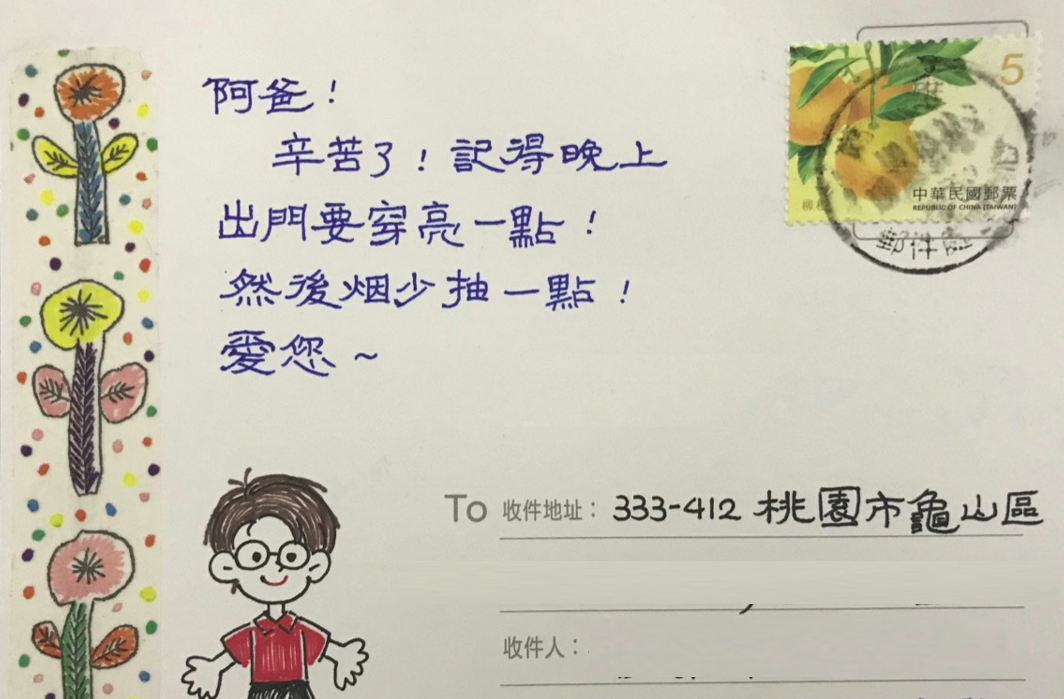 阿爸！
辛苦了！記得晚上
出門要穿亮一點！
然後烟少抽一點！
愛您~
5
中華民國郵票
REPUBLIC OF CHINA (TAIWAN)
柳
郵件
To 收件地址： 333-412 桃園市龜山區
收件人：